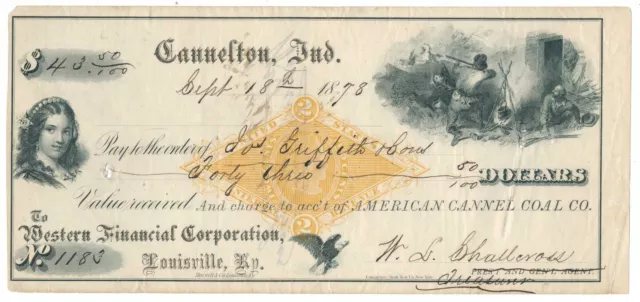 $ 43 50/100
Cannelton, Ind.
Sept 18th 1878
Pay to the order of Jos Griffith & Sons
Forty three 50/100 DOLLARS
Value received And charge to acc't of AMERICAN CANNEL COAL CO.
To
Western Financial Corporation,
No. 1183 Louisville, Ky.
W. L. Shallcross
PRES'T AND GEN'L AGENT.
Treasurer
2
2
UNITED